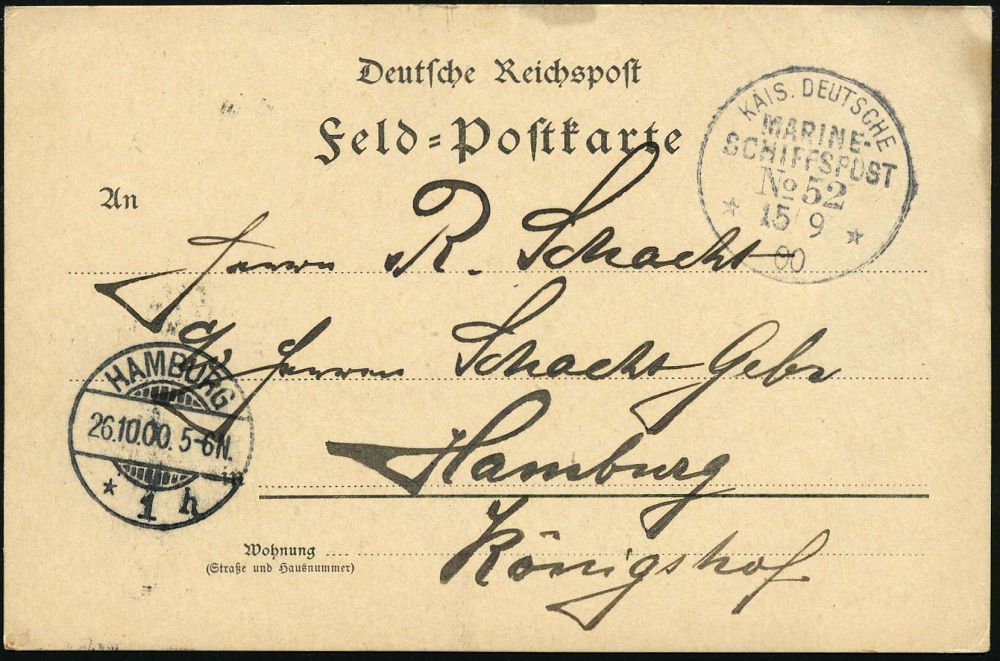 Deutsche Reichspost
Feld=Postkarte
KAIS. DEUTSCHE
MARINE-
SCHIFFSPOST
No 52
15/9
00
An
Herrn R. Schacht
c/o Herren Schacht Gebr
HAMBURG
26.10.00. 5-6N.
* 1 h
in
Hamburg
Wohnung
(Straße und Hausnummer)
Königshof